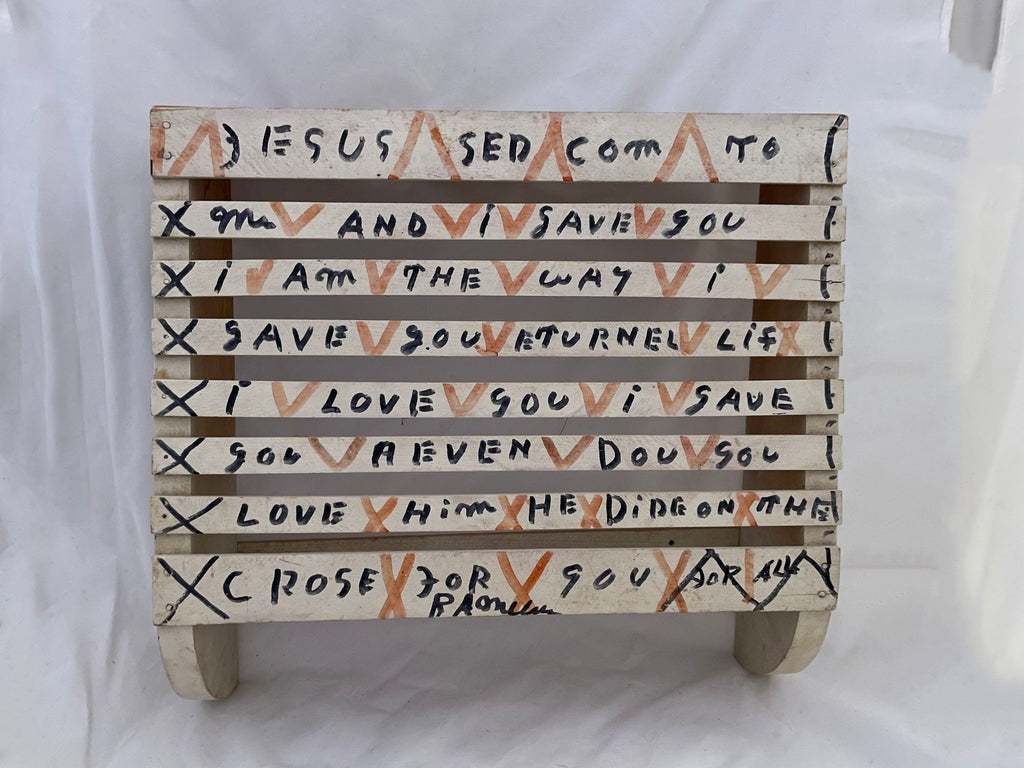 JESUS SED COM TO
me AND i SAVE YOU
i AM THE WAY i
SAVE YOU ETURNEL LiF
i LOVE YOU i SAVE
YOU AEVEN DOU YOU
LOVE HiM HE DiDE ON THE
CROSE FOR YOU FOR ALL